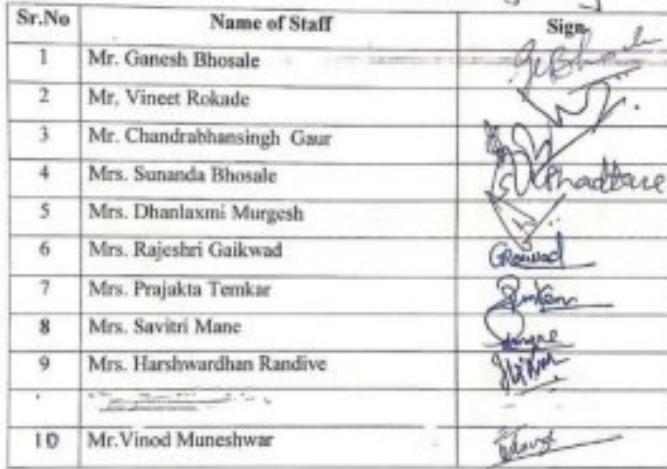 Sr.No Name of Staff Sign
1 Mr. Ganesh Bhosale
2 Mr, Vineet Rokade
3 Mr. Chandrabhansingh Gaur
4 Mrs. Sunanda Bhosale Phadtare
5 Mrs. Dhanlaxmi Murgesh
6 Mrs. Rajeshri Gaikwad
7 Mrs. Prajakta Temkar
8 Mrs. Savitri Mane
9 Mrs. Harshwardhan Randive
10 Mr.Vinod Muneshwar